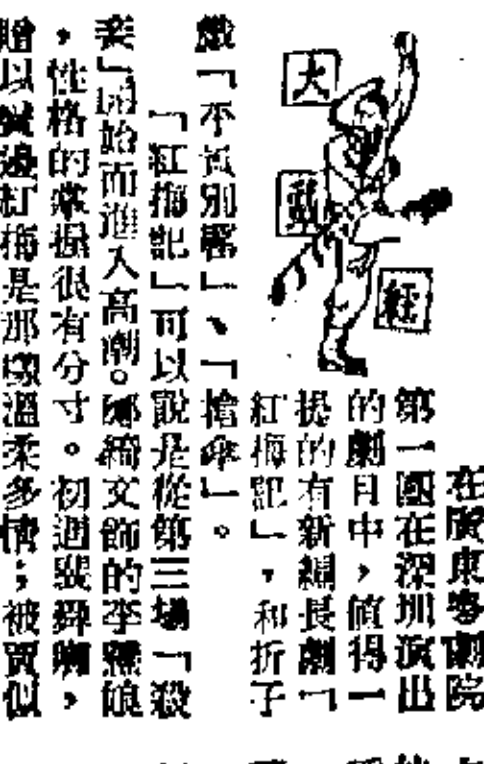 大
戲
經
在廣東粵劇院
第一團在深圳演出
的劇目中,值得一
提的有新編長劇「
紅梅記」,和折子
戲「不貳別窰」、「搶傘」。
「紅梅記」可以說是從第三場「殺
妾」開始而進入高潮。鄭綺文飾的李慧娘
,性格的掌握很有分寸。初遇裴舜卿,
贈以 紅梅是那樣溫柔多情;被賈似